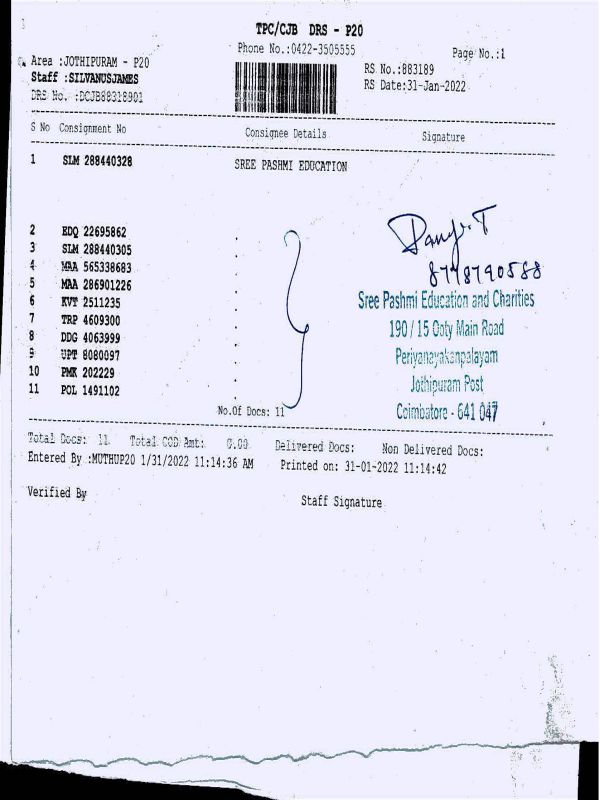 TPC/CJB DRS - P20
Phone No.:0422-3505555
Page No.:1
Area :JOTHIPURAM - P20
RS No.:883189
Staff :SILVANUSJAMES
RS Date:31-Jan-2022
DRS No. :DCJB88318901
S No Consignment No Consignee Details Signature
1 SLM 288440328 SREE PASHMI EDUCATION
2 EDQ 22695862 .
3 SLM 288440305 .
4 MAA 565338683 .
5 MAA 286901226 .
6 KVT 2511235 .
7 TRP 4609300 .
8 DDG 4063999 .
9 UPT 8080097 .
10 PMK 202229 .
11 POL 1491102 .
8778790588
Sree Pashmi Education and Charities
190 / 15 Ooty Main Road
Periyanayakanpalayam
Jothipuram Post
Coimbatore - 641 047
No.Of Docs: 11
Total Docs: 11 Total COD Amt: 0.00 Delivered Docs: Non Delivered Docs:
Entered By :MUTHUP20 1/31/2022 11:14:36 AM Printed on: 31-01-2022 11:14:42
Verified By
Staff Signature